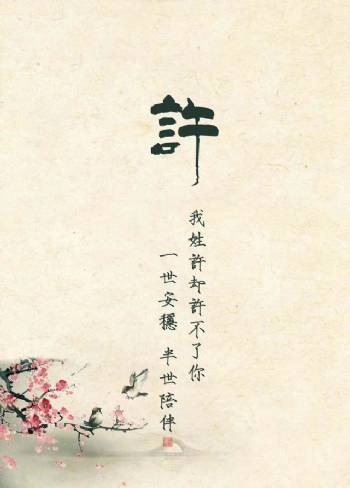 許
我姓許却許不了你
一世安穩 半世陪伴